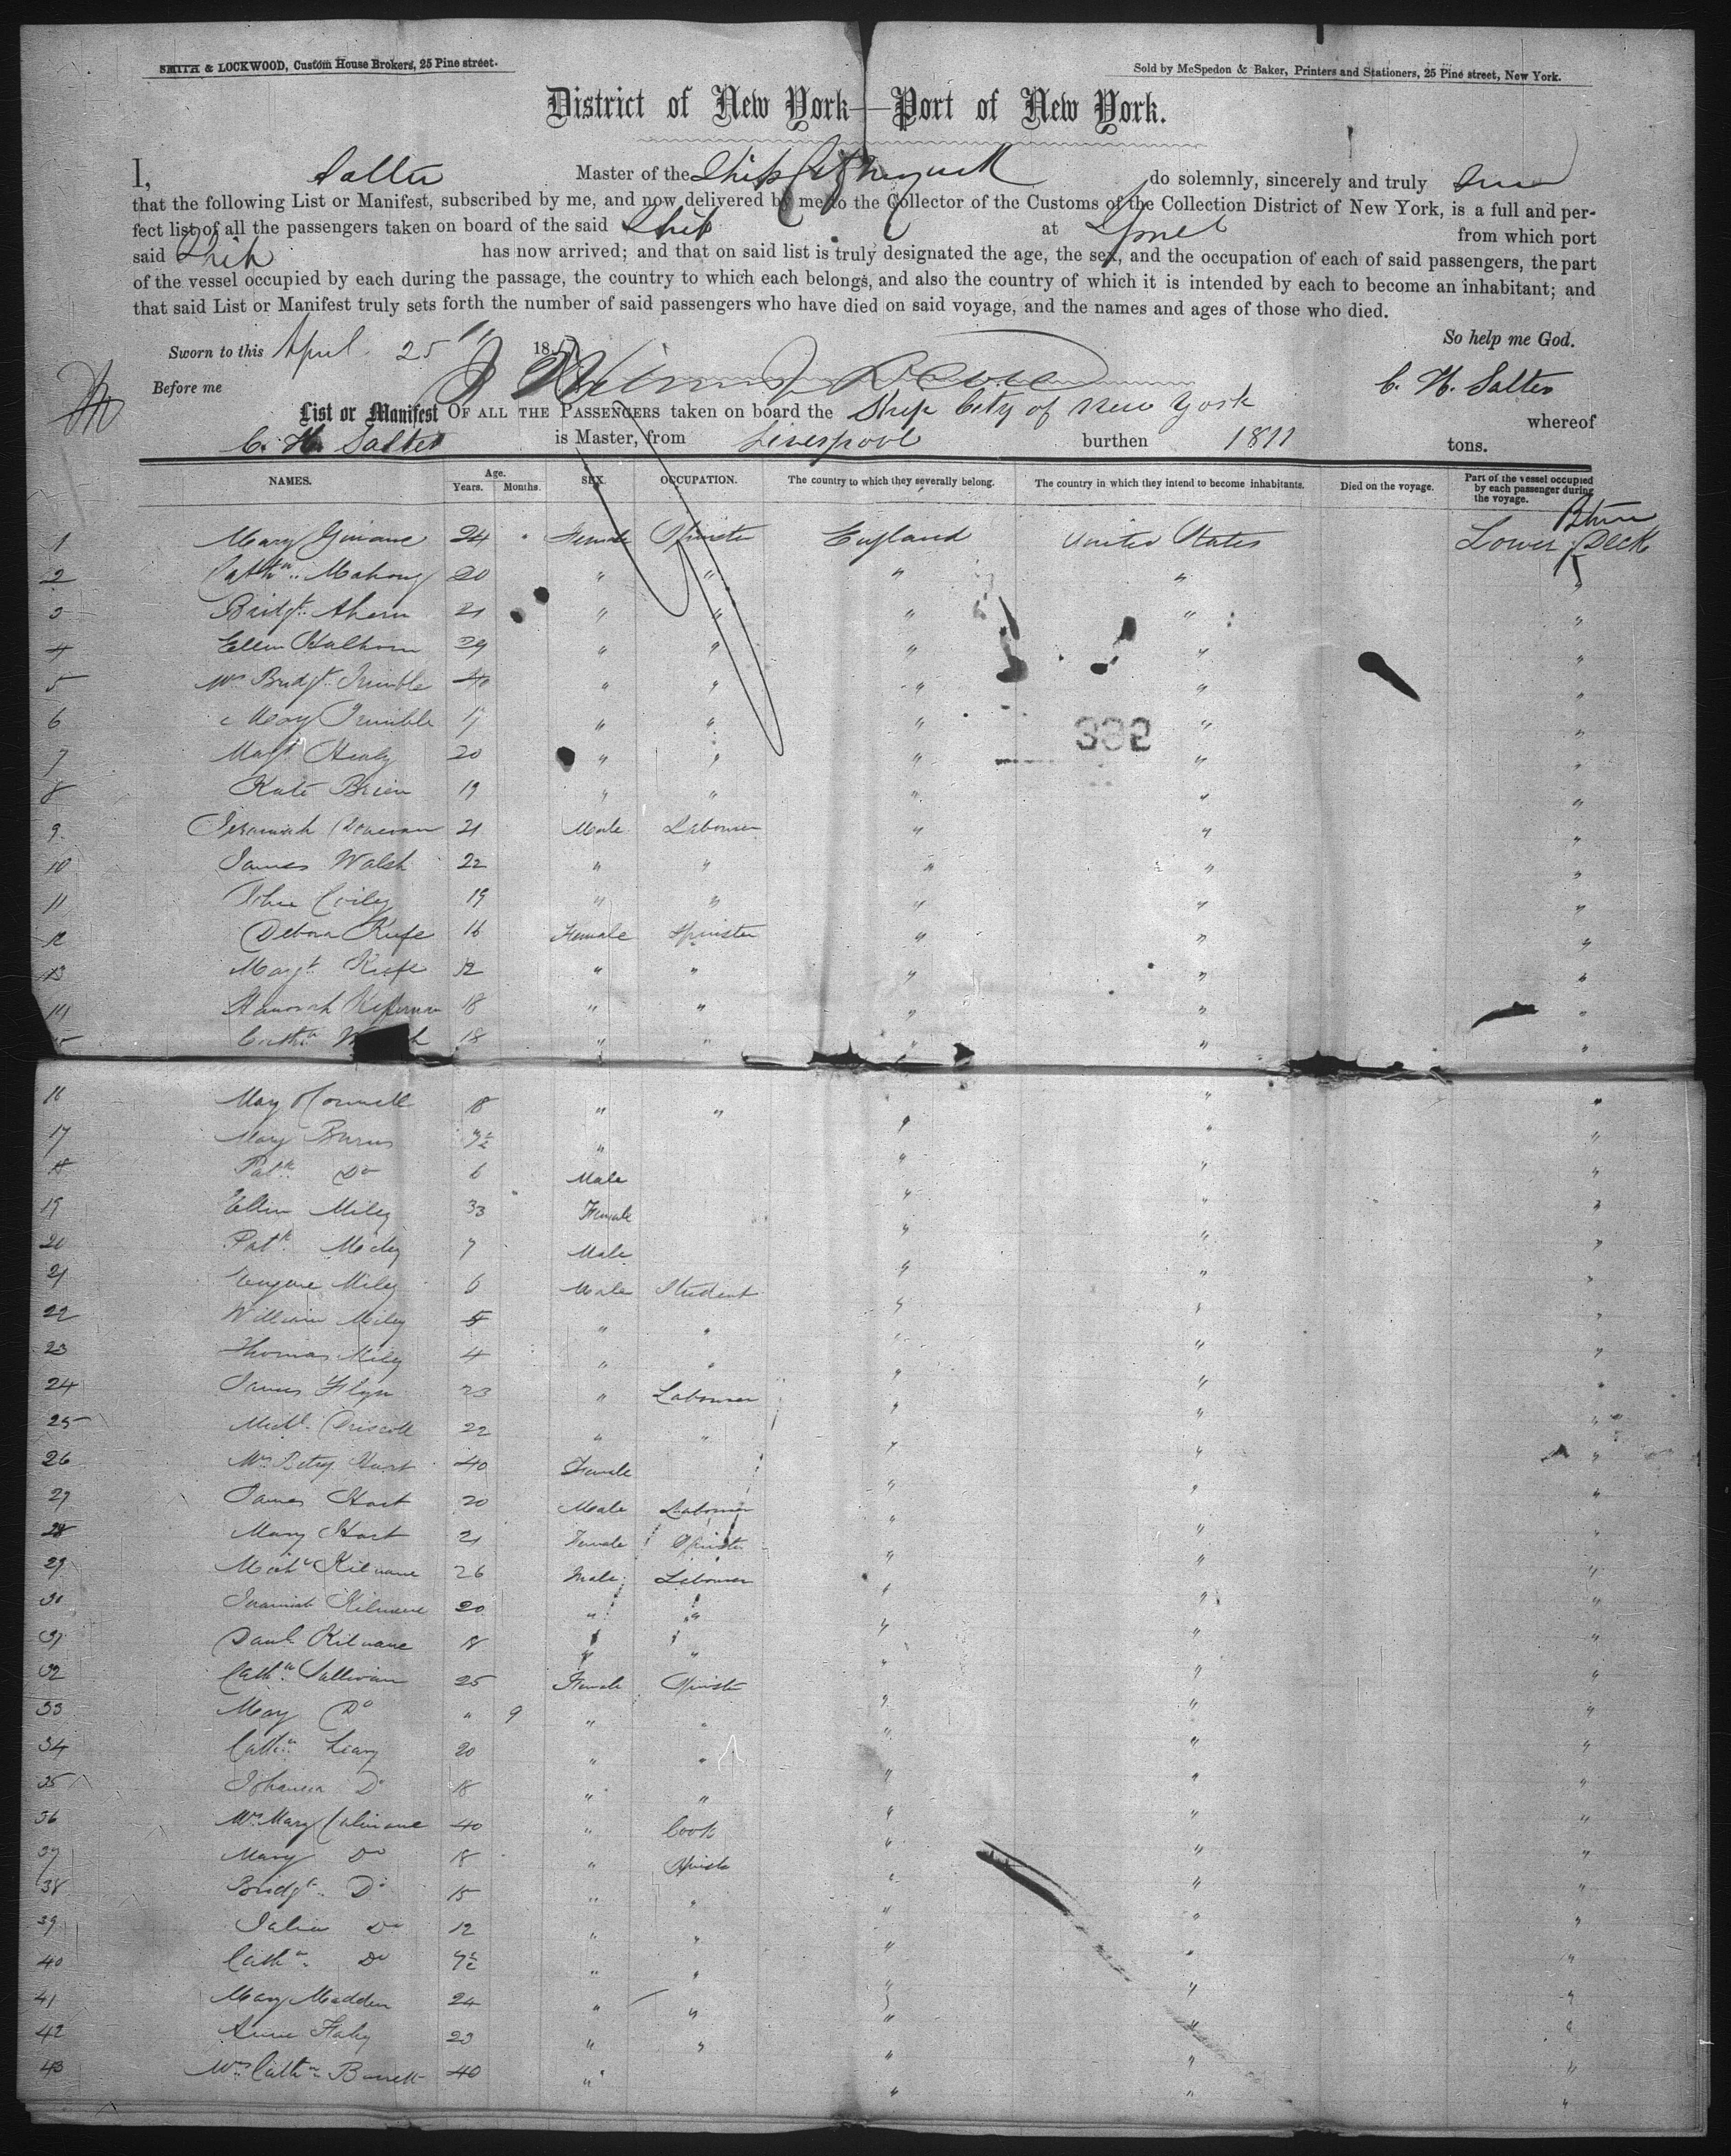 SMITH & LOCKWOOD, Custom House Brokers, 25 Pine street.
Sold by McSpedon & Baker, Printers and Stationers, 25 Pine street, New York.
District of New York—Port of New York.
I, Salter Master of the Ship City New York do solemnly, sincerely and truly
that the following List or Manifest, subscribed by me, and now delivered by me to the Collector of the Customs of the Collection District of New York, is a full and per-
fect list of all the passengers taken on board of the said Ship at from which port
said Ship has now arrived; and that on said list is truly designated the age, the sex, and the occupation of each of said passengers, the part
of the vessel occupied by each during the passage, the country to which each belongs, and also the country of which it is intended by each to become an inhabitant; and
that said List or Manifest truly sets forth the number of said passengers who have died on said voyage, and the names and ages of those who died.
So help me God.
Sworn to this April 25th 18
Before me
C. H. Salter
List or Manifest OF ALL THE PASSENGERS taken on board the Ship City of New York whereof
C. H. Salter is Master, from Liverpool burthen 1811 tons.
NAMES. Age. Years. Months. SEX. OCCUPATION. The country to which they severally belong. The country in which they intend to become inhabitants. Died on the voyage. Part of the vessel occupied by each passenger during the voyage.
1 Mary 24 " Female Spinster England United States Lower Deck
2 Cathn. Mahony 20 " " " " "
3 Bridgt. Ahern 21 " " " " "
4 Ellen 29 " " " " "
5 Mrs Bridgt. Trimble 40 " " " " "
6 Mary Trimble 17 " " " " "
7 Margt Healy 20 " " " " "
8 Kate Brien 19 " " " " "
9 Jeremiah Donovan 21 Male Labourer " " "
10 James Walsh 22 " " " " "
11 John 19 " " " " "
12 Debora Keefe 16 Female Spinster " " "
13 Margt Keefe 12 " " " " "
14 Hanorah 18 " " " " "
15 Cathn 18 " " " " "
16 Mary Connell 18 " " " " "
17 Mary Burns " " " "
18 Patk Do 6 Male " " "
19 Ellen Miley 33 Female " " "
20 Patk. Miley 7 Male " " "
21 Eugene Miley 6 Male Student " " "
22 William Miley 5 " " " " "
23 Thomas Miley 4 " " " " "
24 James Flyn 23 " Labourer " " "
25 Michl. Driscoll 22 " " " " "
26 Mrs Betsy Hart 40 Female " " "
27 James Hart 20 Male Labourer " " "
28 Mary Hart 21 Female Spinster " " "
29 Michl Kilnane 26 Male Labourer " " "
30 Jeramiah Kilnane 20 " " " " "
31 Danl. Kilnane 18 " " " " "
32 Cathn. Sullivan 25 Female Spinster " " "
33 Mary Do " 9 " " " " "
34 Cathn. Leary 20 " " " " "
35 Johanna Do 18 " " " " "
36 Mrs Mary 40 " Cook " " "
37 Mary Do 18 " Spinster " " "
38 Bridgt. Do 15 " " " " "
39 Julia Do 12 " " " " "
40 Cathn. Do " " " " "
41 Mary Madden 24 " " " " "
42 Anne Flahy 23 " " " " "
43 Mrs Cathn Barrett 40 " " " "
392